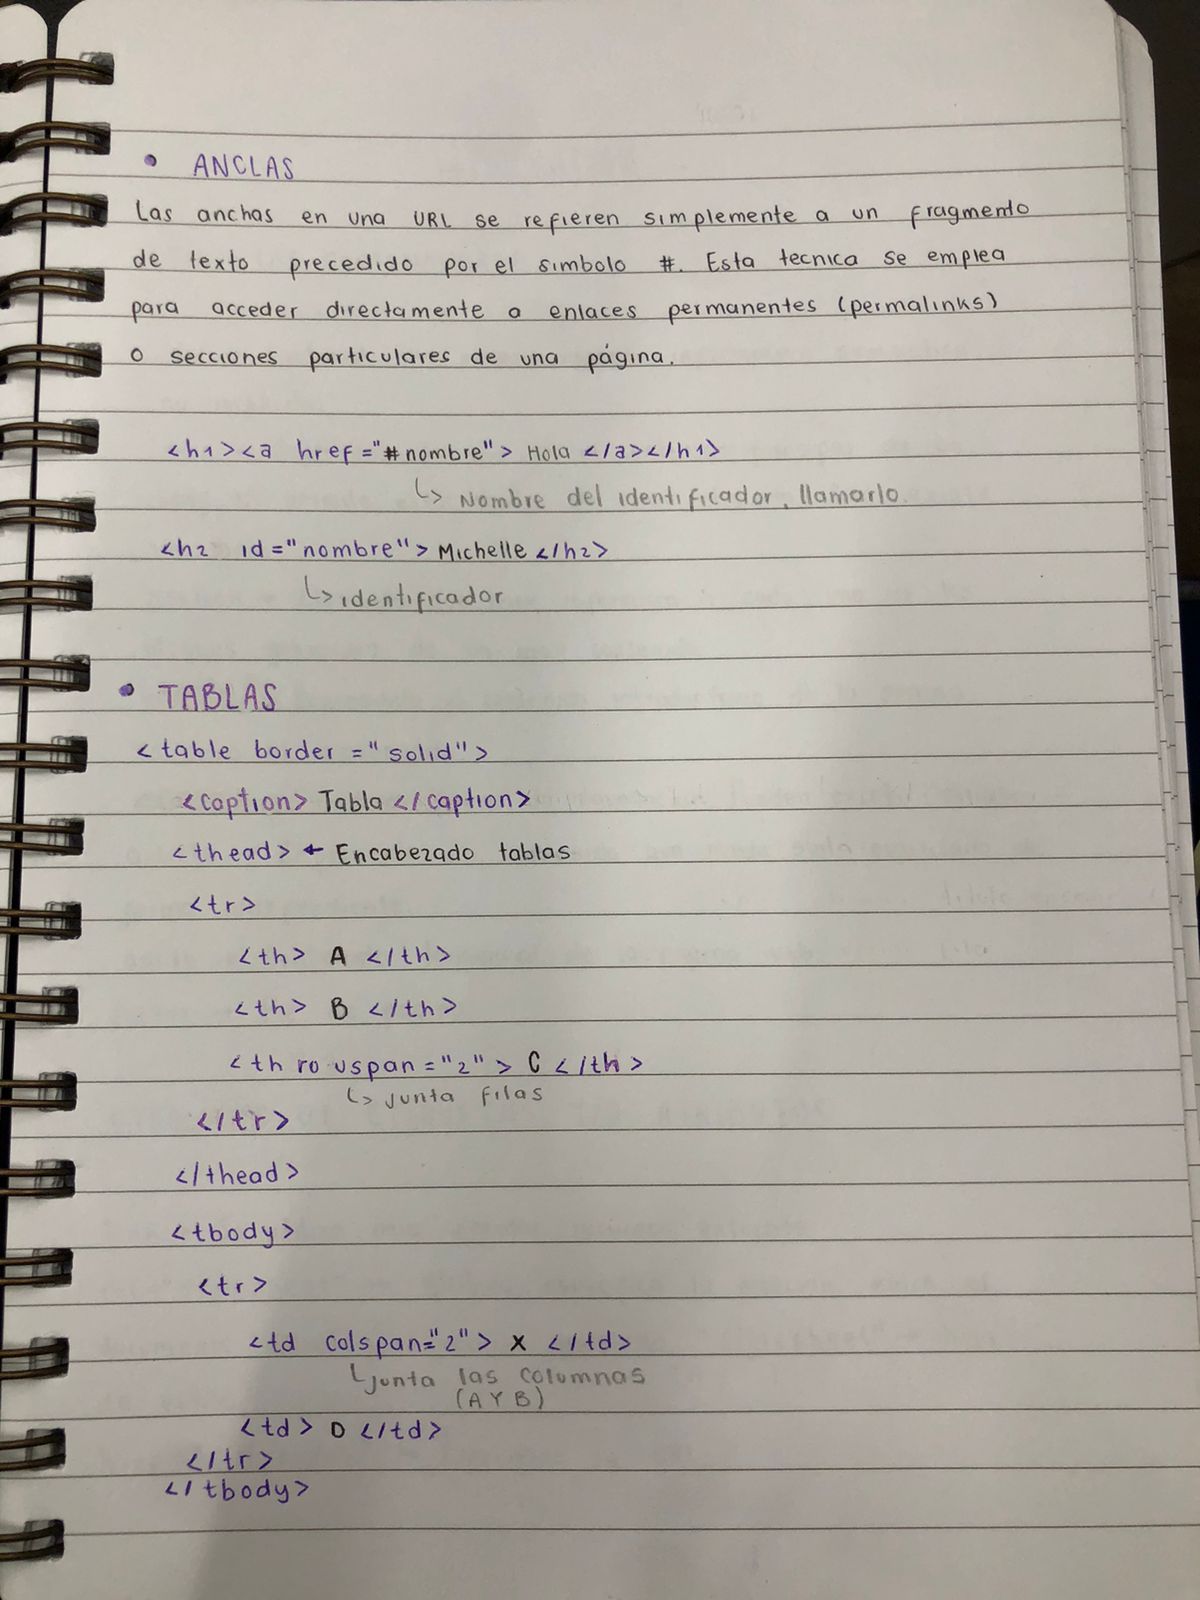 • ANCLAS
Las anchas en una URL se refieren simplemente a un fragmento
de texto precedido por el simbolo #. Esta tecnica se emplea
para acceder directamente a enlaces permanentes (permalinks)
o secciones particulares de una página.
<h1><a href="#nombre"> Hola </a></h1>
↳ Nombre del identificador, llamarlo.
<h2 id="nombre"> Michelle </h2>
↳ identificador
• TABLAS
<table border="solid">
<caption> Tabla </caption>
<thead> ← Encabezado tablas
<tr>
<th> A </th>
<th> B </th>
<th rouspan="2"> C </th>
↳ junta filas
</tr>
</thead>
<tbody>
<tr>
<td colspan="2"> X </td>
↳ junta las columnas
(A Y B)
<td> D </td>
</tr>
</tbody>